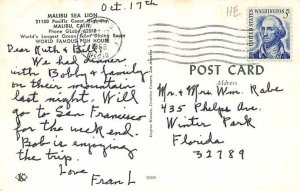 Oct. 17th
HE
MALIBU SEA LION
21150 Pacific Coast Highway
MALIBU, CALIF.
World's Longest Ocean Front Dining Room
WORLD FAMOUS FISH HOUSE
Dear Ruth & Bill:
We had dinner
with Bobby & family
on their mountain
last night. Will
go to San Francisco
for the week end.
Bob is enjoying
the trip.
Love
Fran L
POST CARD
Address
U.S. POSTAGE
WASHINGTON 5
Mr. & Mrs. Wm. Rabe
435 Phelps Ave.
Winter Park
Florida
32789